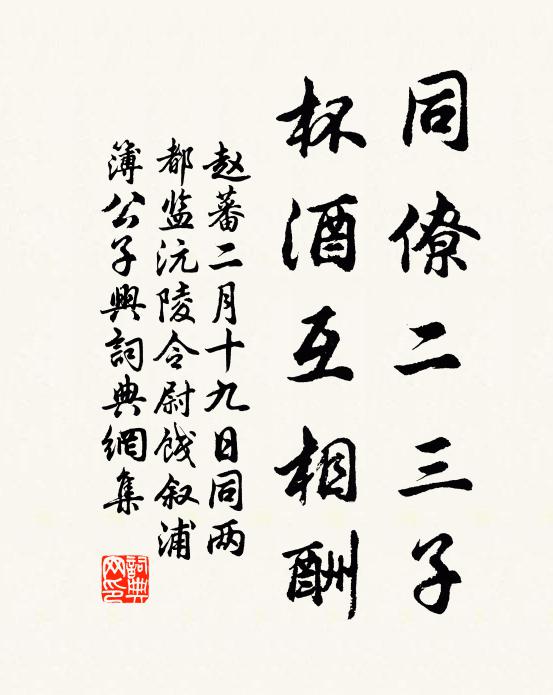 同僚二三子
杯酒互相酬
赵蕃二月十九日同两
都监沅陵令尉饯叙浦
簿公子興詞典網集
詞典
网印